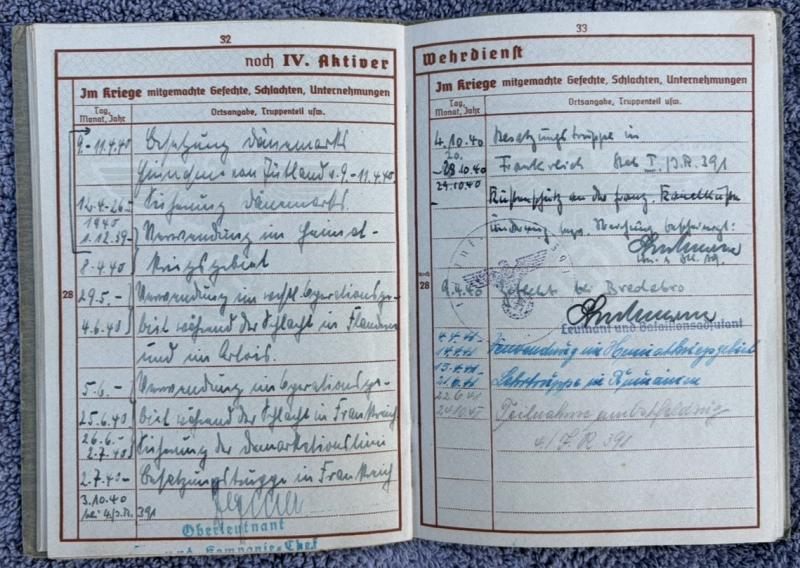 32
noch IV. Aktiver
Im Kriege mitgemachte Gefechte, Schlachten, Unternehmungen
Tag, Monat, Jahr
Ortsangabe, Truppenteil usw.
9.-11.4.40 Besetzung Dänemarks
Einnahme von Jütland v. 9.-11.4.40.
12.4.-26.- Sicherung Dänemarks.
1940
1.12.39- Verwendung im Heimat-
8.4.40 kriegsgebiet
28
29.5.- Verwendung im westl. Operationsge-
4.6.40 biet während der Schlacht in Flandern
und im Artois.
5.6.- Verwendung im Operationsge-
25.6.40 biet während der Schlacht in Frankreich
26.6.- Sicherung der Demarkationslinie
2.7.40
2.7.40- Besatzungstruppe in Frankreich
3.10.40
bei 4./J.R. 391
Oberleutnant
und Kompanie-Chef
33
Wehrdienst
Im Kriege mitgemachte Gefechte, Schlachten, Unternehmungen
Tag, Monat, Jahr
Ortsangabe, Truppenteil usw.
4.10.40 Besatzungstruppe in
28.10.40 Frankreich I. J.R. 391
29.10.40
Küstenschutz an der franz. Kanalküste
28
9.4.40 Gefecht bei Bredebro
Leutnant und Bataillonsadjutant
Verwendung im Heimatkriegsgebiet
Lehrtruppe in Rumänien
22.6.41
Teilnahme
4/J.R 391